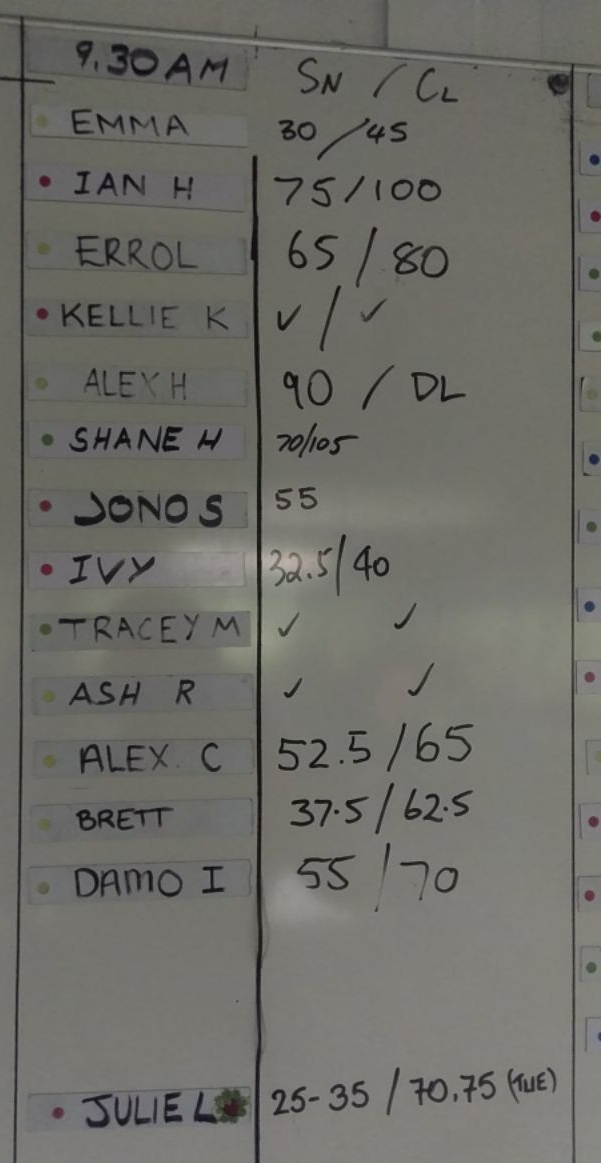 9.30AM SN / CL
EMMA 30 / 45
IAN H 75/100
ERROL 65 / 80
KELLIE K ✓ / ✓
ALEX H 90 / DL
SHANE H 70/105
JONO S 55
IVY 32.5/40
TRACEY M ✓ ✓
ASH R ✓ ✓
ALEX C 52.5/65
BRETT 37.5/62.5
DAMO I 55/70
JULIE L 25-35 / 70.75 (TUE)